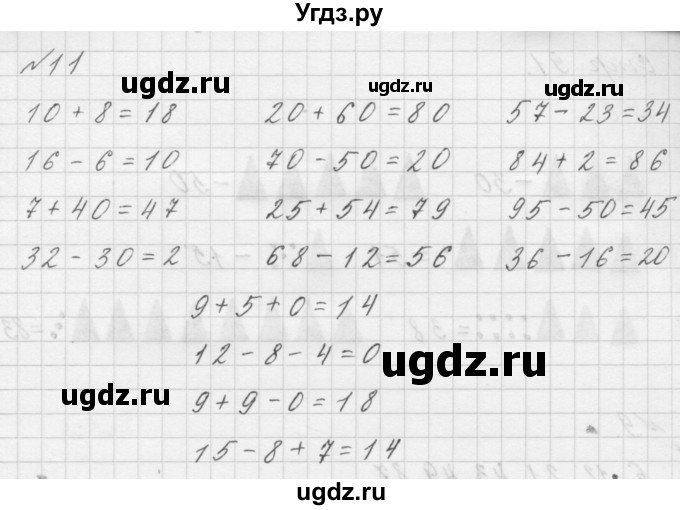 Угдз.ру
№11
ugdz.ru ugdz.ru ugdz.ru
10 + 8 = 18 20 + 60 = 80 57 - 23 = 34
16 - 6 = 10 70 - 50 = 20 84 + 2 = 86
7 + 40 = 47 25 + 54 = 79 95 - 50 = 45
32 - 30 = 2 68 - 12 = 56 36 - 16 = 20
9 + 5 + 0 = 14
12 - 8 - 4 = 0
ugdz.ru ugdz.ru
9 + 9 - 0 = 18
15 - 8 + 7 = 14
ugdz.ru